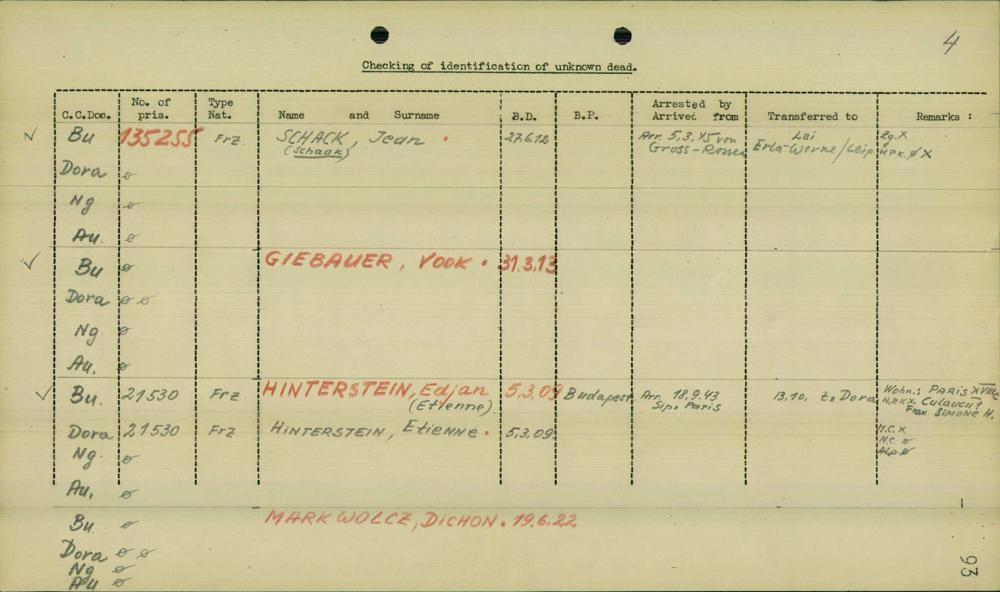 4
Checking of identification of unknown dead.
C.C.Doc. No. of pris. Type Nat. Name and Surname B.D. B.P. Arrested by Arrived from Transferred to Remarks :
Bu 135255 Frz. SCHACK, Jean 27.6.12 Arr. 5.3.45 von Lei Zg. X
(Schaak) Gross-Rosen Erla-Werke/Leip. H.P.K. ø X
Dora ø
Ng ø
Au. ø
Bu ø GIEBAUER, VOOK 31.3.13
Dora ø ø
Ng ø
Au. ø
Bu. 21530 Frz HINTERSTEIN, Edjan 5.3.09 Budapest Arr. 18.9.43 13.10. to Dora Wohn.: PARIS XVIIIe
(Etienne) Sipo Paris H.P.K. X
Frau SIMONE H.
Dora 21530 Frz HINTERSTEIN, Etienne 5.3.09 N.C. X
N.C. ø
Ng. ø
Au. ø
Bu ø MARKWOLCZ, DICHON. 19.6.22
Dora ø ø
Ng ø
Au ø
93